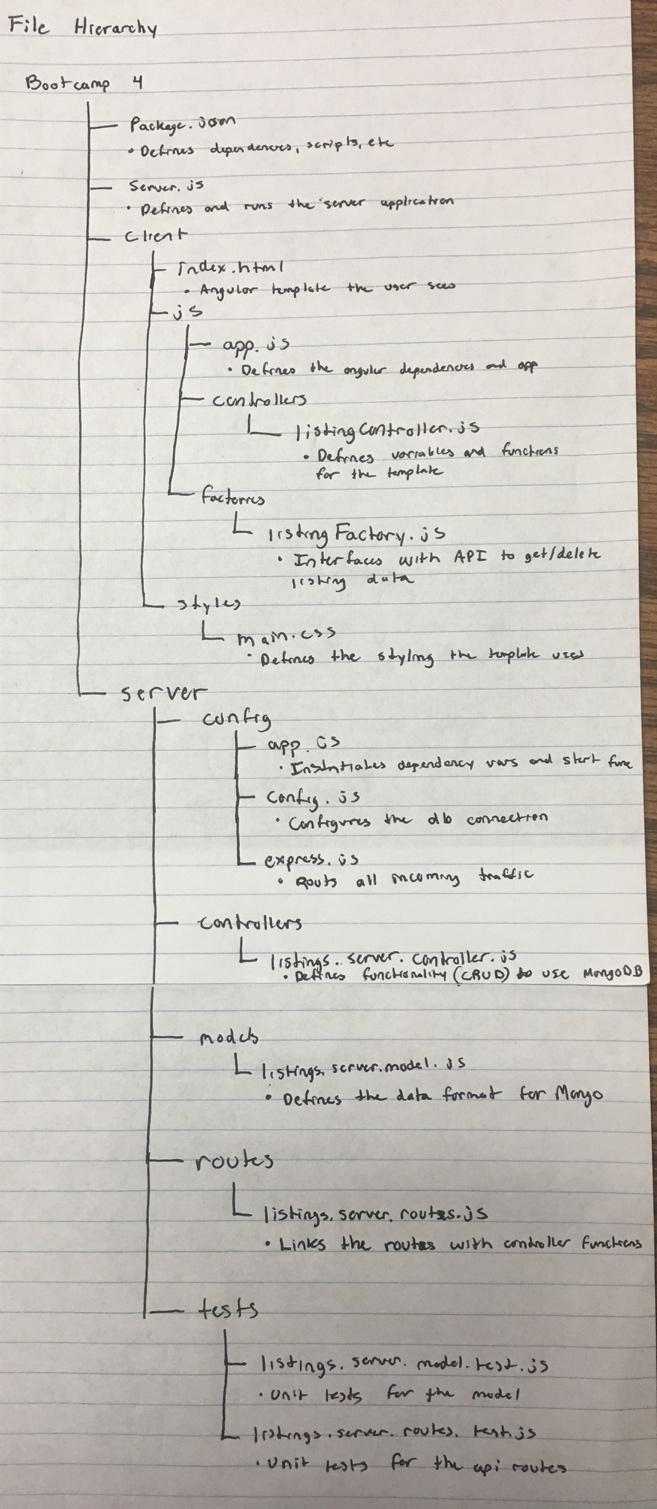 File Hierarchy
Bootcamp 4
Package.json
• Defines dependences, scripts, etc
Server.js
• Defines and runs the server application
Client
index.html
• Angular template the user sees
js
app.js
• Defines the angular dependencies and app
controllers
listingController.js
• Defines variables and functions
for the template
factories
listingFactory.js
• Interfaces with API to get/delete
listing data
styles
main.css
• Defines the styling the template uses
server
config
app.js
• Instantiates dependency vars and start func
config.js
• Configures the db connection
express.js
• Routs all incoming traffic
controllers
listings.server.controller.js
• Defines functionality (CRUD) to use MongoDB
models
listings.server.model.js
• Defines the data format for Mongo
routes
listings.server.routes.js
• Links the routes with controller functions
tests
listings.server.model.test.js
• Unit tests for the model
listings.server.routes.test.js
• Unit tests for the api routes